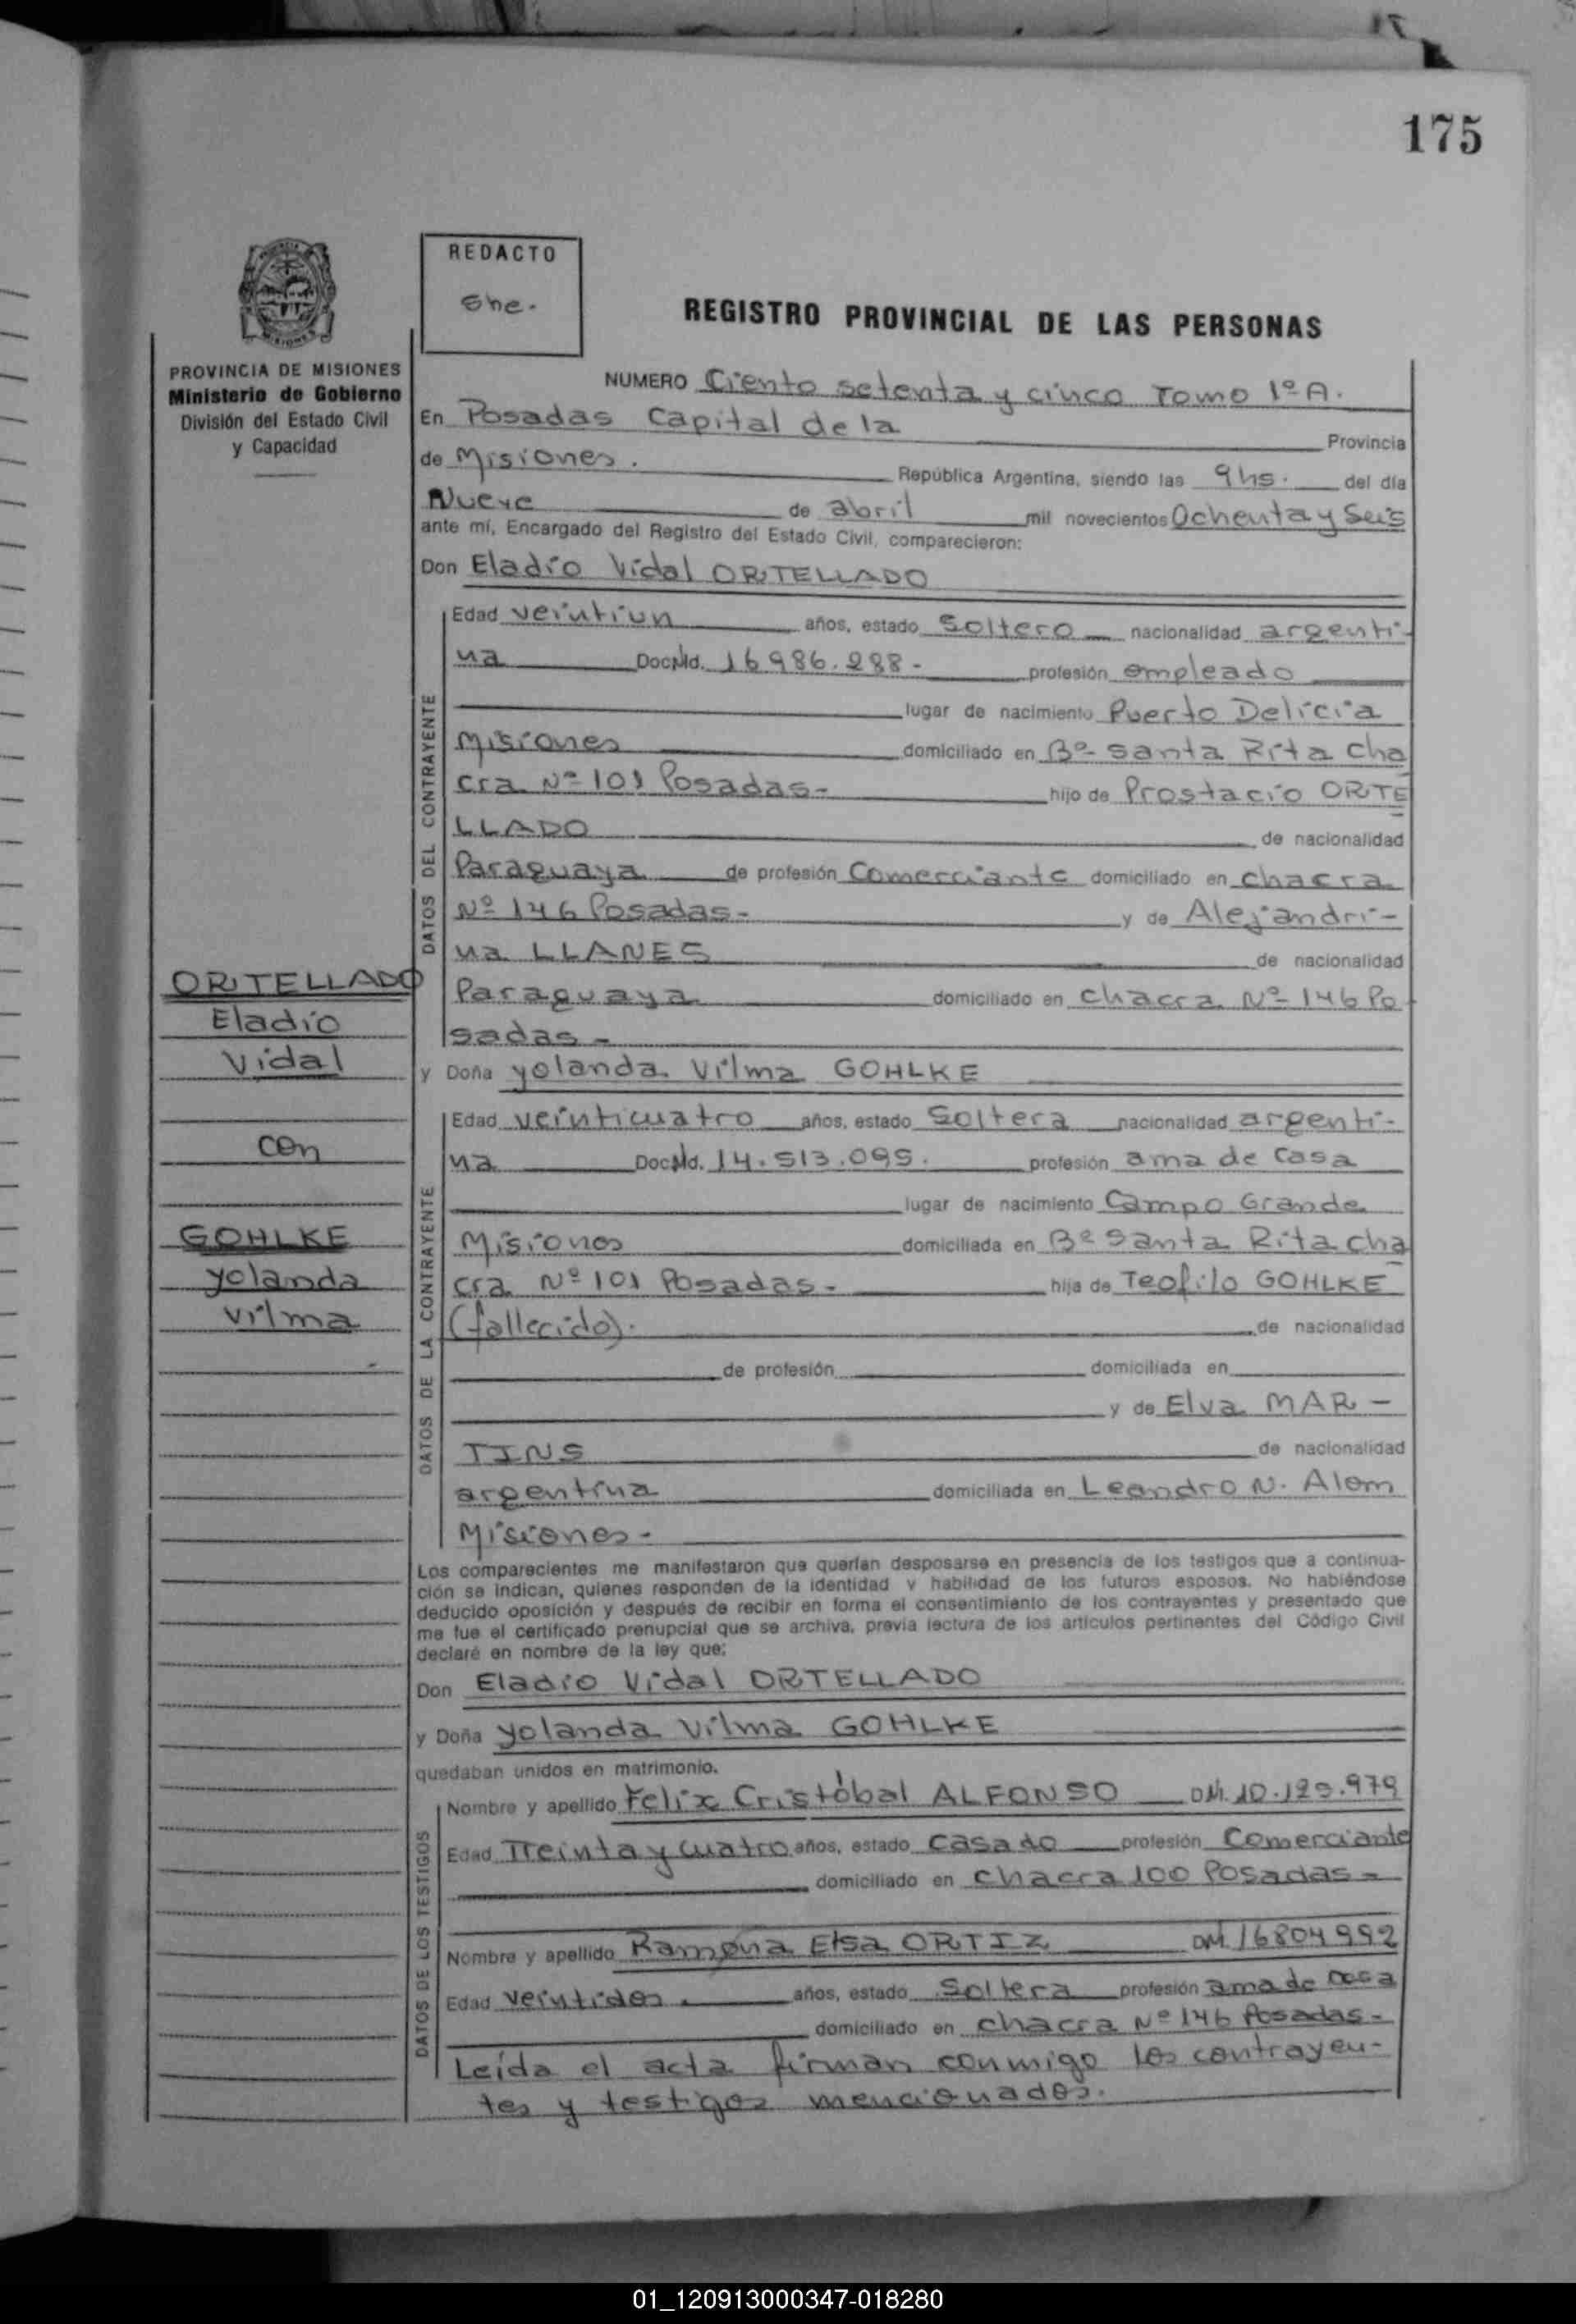 175
REDACTO
She.
REGISTRO PROVINCIAL DE LAS PERSONAS
PROVINCIA DE MISIONES
Ministerio de Gobierno
División del Estado Civil
y Capacidad
NUMERO Ciento setenta y cinco Tomo 1º A.
En Posadas Capital de la Provincia
de Misiones. República Argentina, siendo las 9 hs. del día
Nueve de abril mil novecientos Ochenta y Seis
ante mí, Encargado del Registro del Estado Civil, comparecieron:
Don Eladio Vidal ORTELLADO
DATOS DEL CONTRAYENTE
Edad veintiun años, estado Soltero nacionalidad argenti-
na Doc.Nd. 16986.288- profesión empleado
lugar de nacimiento Puerto Delicia
Misiones domiciliado en Bº Santa Rita Cha
cra Nº 101 Posadas- hijo de Prostacio ORTE
LLADO de nacionalidad
Paraguaya de profesión Comerciante domiciliado en chacra
Nº 146 Posadas- y de Alejandri-
na LLANES de nacionalidad
Paraguaya domiciliado en chacra Nº 146 Po
sadas-
ORTELLADO
Eladio
Vidal
con
GOHLKE
Yolanda
Vilma
y Doña Yolanda Vilma GOHLKE
DATOS DE LA CONTRAYENTE
Edad veinticuatro años, estado Soltera nacionalidad argenti-
na Doc.Nd. 14.513.095. profesión ama de casa
lugar de nacimiento Campo Grande
Misiones domiciliada en Bº Santa Rita cha
cra Nº 101 Posadas- hija de Teofilo GOHLKE
(fallecido). de nacionalidad
de profesión domiciliada en
y de Elva MAR-
TINS de nacionalidad
argentina domiciliada en Leandro N. Alem
Misiones-
Los comparecientes me manifestaron que querían desposarse en presencia de los testigos que a continua-
ción se indican, quienes responden de la identidad y habilidad de los futuros esposos. No habiéndose
deducido oposición y después de recibir en forma el consentimiento de los contrayentes y presentado que
me fue el certificado prenupcial que se archiva, previa lectura de los artículos pertinentes del Código Civil
declaré en nombre de la ley que:
Don Eladio Vidal ORTELLADO
y Doña Yolanda Vilma GOHLKE
quedaban unidos en matrimonio.
DATOS DE LOS TESTIGOS
Nombre y apellido Felix Cristóbal ALFONSO DNI. 10.129.979
Edad Treinta y cuatro años, estado Casado profesión Comerciante
domiciliado en chacra 100 Posadas-
Nombre y apellido Ramona Elsa ORTIZ DNI. 16804992
Edad veintidos. años, estado Soltera profesión ama de casa
domiciliado en chacra Nº 146 Posadas-
Leída el acta firman conmigo los contrayen-
tes y testigos mencionados.
01_120913000347-018280